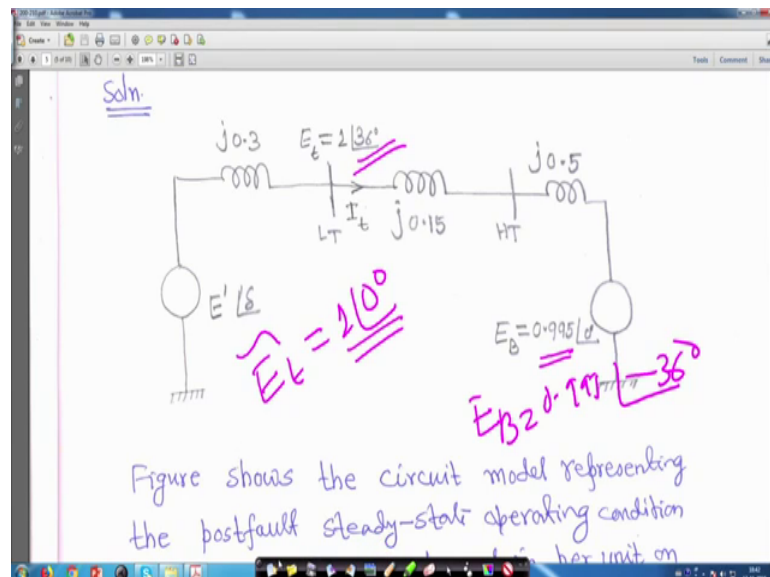 200-250.pdf - Adobe Acrobat Pro
File Edit View Window Help
Create
Tools Comment Share
Soln.
j0.3 E_t = 2∠36° j0.5
LT I_t j0.15 HT
E'∠δ
E_B = 0.995∠0°
E_t = 2∠0°
-36°
Figure shows the circuit model representing
the postfault steady-state operating condition
per unit on